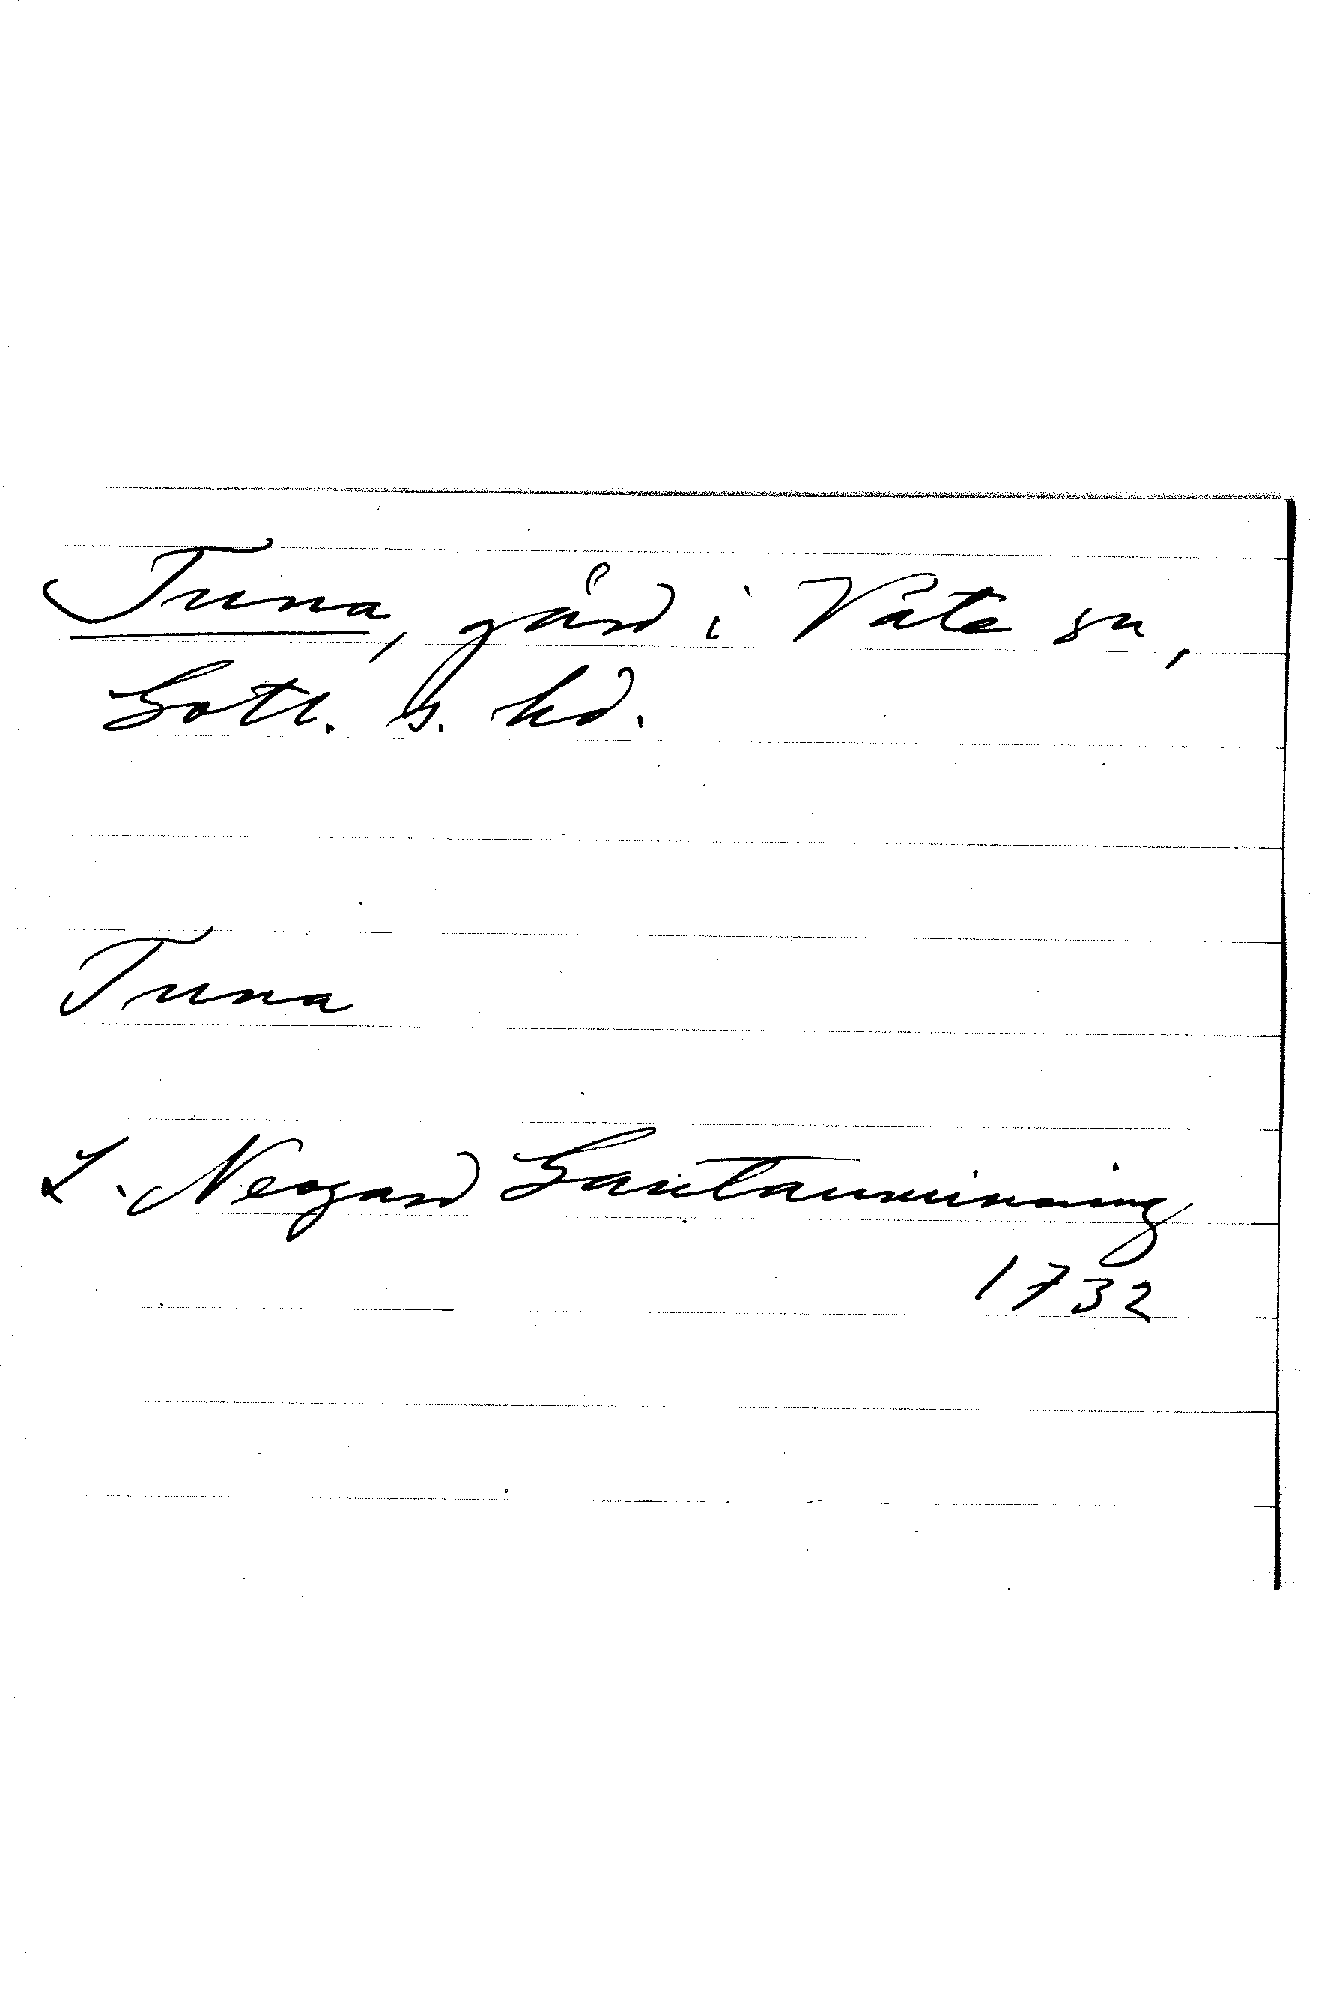 Tuna, gård i Väte sn,
Gotl. s. hd.
Tuna
L. Neogard Gautauminning
1732